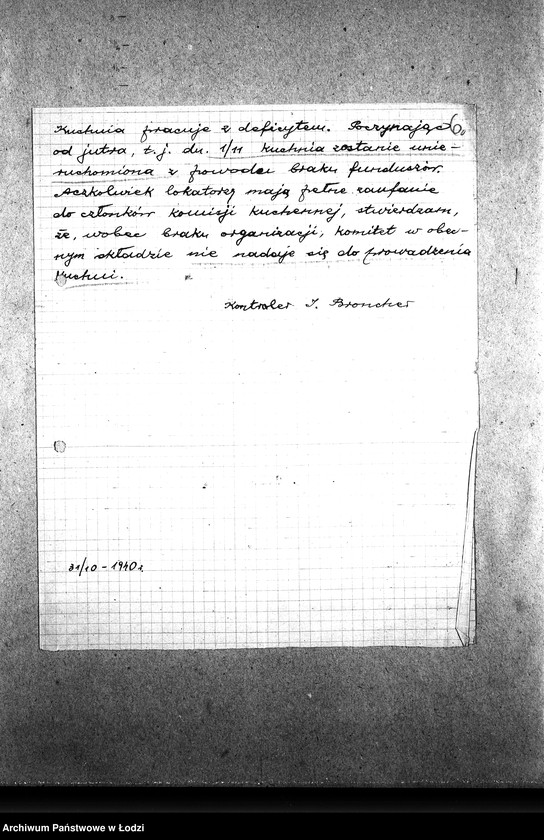 Kuchnia pracuje z deficytem. Poczynając 6.
od jutra, t.j. dn. 1/11 kuchnia zostanie unie-
ruchomiona z powodu braku funduszów.
Aczkolwiek lokatorzy mają pełne zaufanie
do członków komisji kuchennej, stwierdzam,
że, wobec braku organizacji, komitet w obec-
nym składzie nie nadaje się do prowadzenia
kuchni.
Kontroler I. Broncher
31/10 - 1940 r.
Archiwum Państwowe w Łodzi